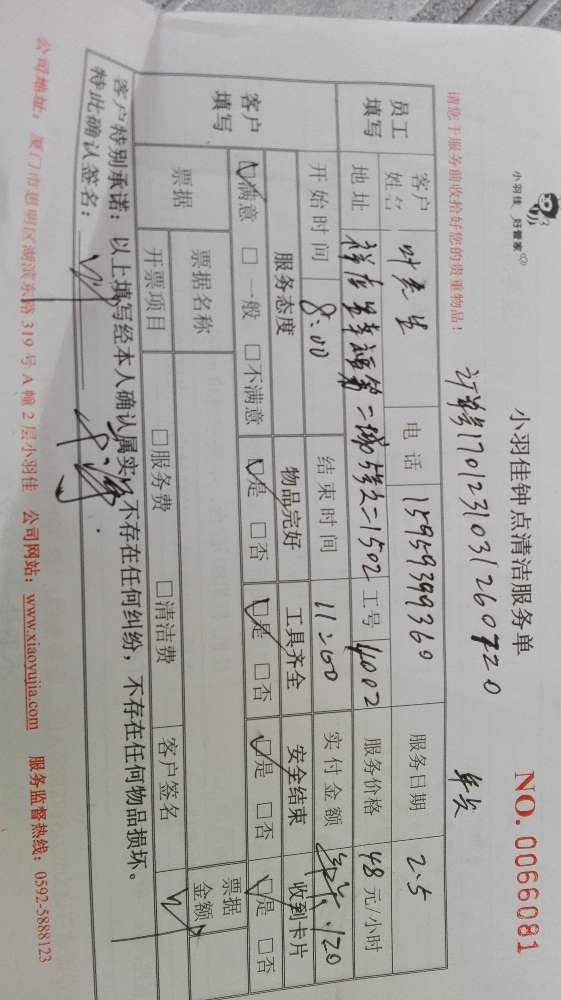 小羽佳 好管家
小羽佳钟点清洁服务单
NO. 0066081
请您于服务前收拾好您的贵重物品！
订单号1701231031260920
员工填写
客户姓名 叶先生 电话 15959399360 服务日期 2.5
地址 二1502 工号 4002 服务价格 48 元/小时
开始时间 8:00 结束时间 11:00 实付金额 120
客户填写
服务态度 物品完好 工具齐全 安全结束 收到卡片
☑满意 □一般 □不满意 ☑是 □否 ☑是 □否 ☑是 □否 ☑是 □否
票据 票据名称 票据金额
开票项目 □服务费 □清洁费 客户签名
客户特别承诺：以上填写经本人确认属实，不存在任何纠纷，不存在任何物品损坏。
特此确认签名：
公司地址：厦门市思明区湖滨东路 319 号 A 幢 2 层小羽佳 公司网站：www.xiaoyujia.com 服务监督热线：0592-5888123